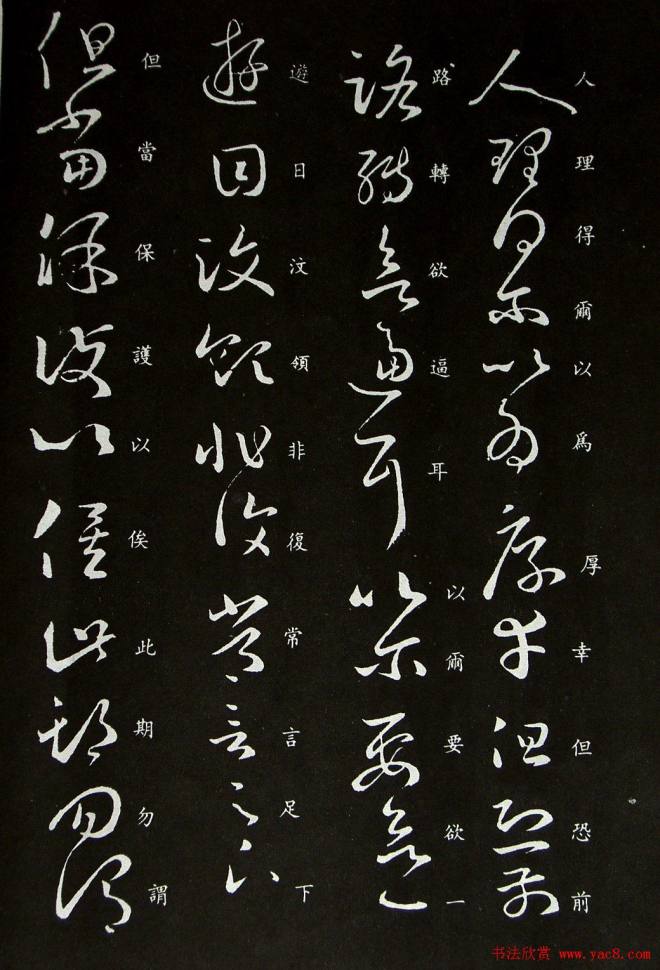 人理得爾以爲厚幸但恐前
路轉欲逼耳以爾要欲一
遊日汶領非復常言足下
但當保護以俟此期勿謂
书法欣赏 www.yac8.com